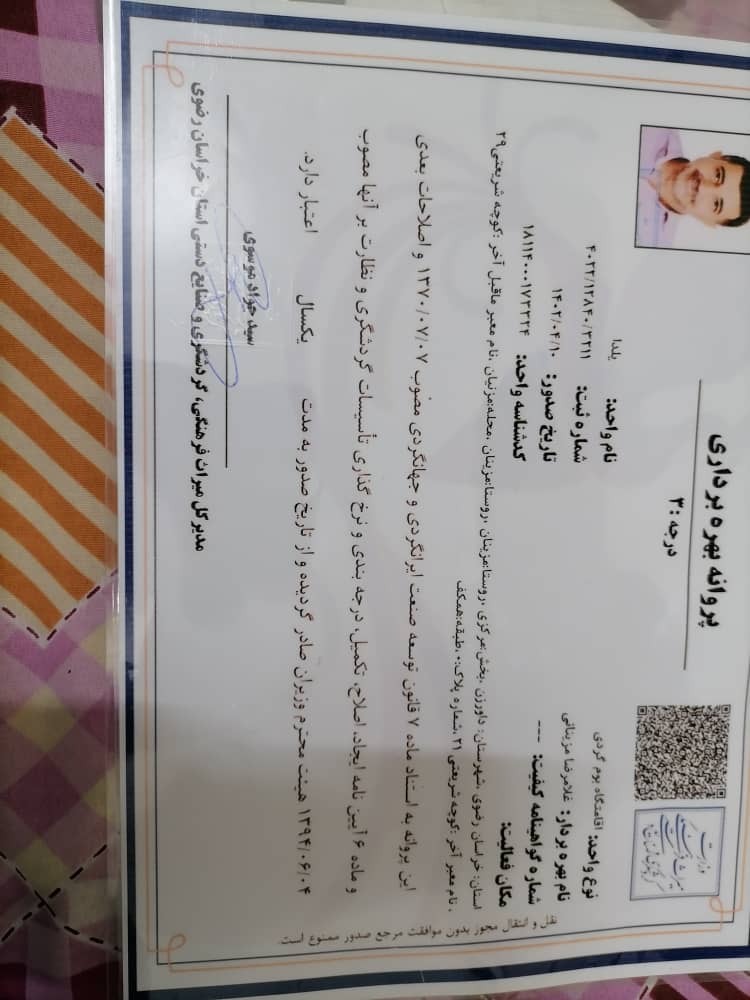 پروانه بهره برداری
درجه : ۳
نوع واحد: اقامتگاه بوم گردی
نام واحد: یلدا
نام بهره بردار: غلامرضا مزینانی
شماره ثبت: ۴۰۲۲/۱۲۸۴۰/۳۲۱۱
شماره گواهینامه کیفیت: ---
تاریخ صدور: ۱۴۰۲/۰۴/۱۰
مکان فعالیت:
کدشناسه واحد: ۱۸۱۱۴۰۰۰۱۷۳۳۲۴
استان: خراسان رضوی ,شهرستان: داورزن ,بخش:مرکزی ,روستا:مزینان ,روستا:مزینان ,محله:مزنیان ,نام معبر ماقبل آخر :کوچه شریعتی۲۹
, نام معبر آخر :کوچه شریعتی ۲۱ ,شماره پلاک:۰ ,طبقه:همکف
این پروانه به استناد ماده ۷ قانون توسعه صنعت ایرانگردی و جهانگردی مصوب ۱۳۷۰/۰۷/۰۷ و اصلاحات بعدی
و ماده ۶ آیین نامه ایجاد، اصلاح، تکمیل، درجه بندی و نرخ گذاری تأسیسات گردشگری و نظارت بر آنها مصوب
۱۳۹۴/۰۶/۰۴ هیئت محترم وزیران صادر گردیده و از تاریخ صدور به مدت یکسال اعتبار دارد.
سید جواد موسوی
مدیر کل میراث فرهنگی، گردشگری و صنایع دستی استان خراسان رضوی
نقل و انتقال مجوز بدون موافقت مرجع صدور ممنوع است.